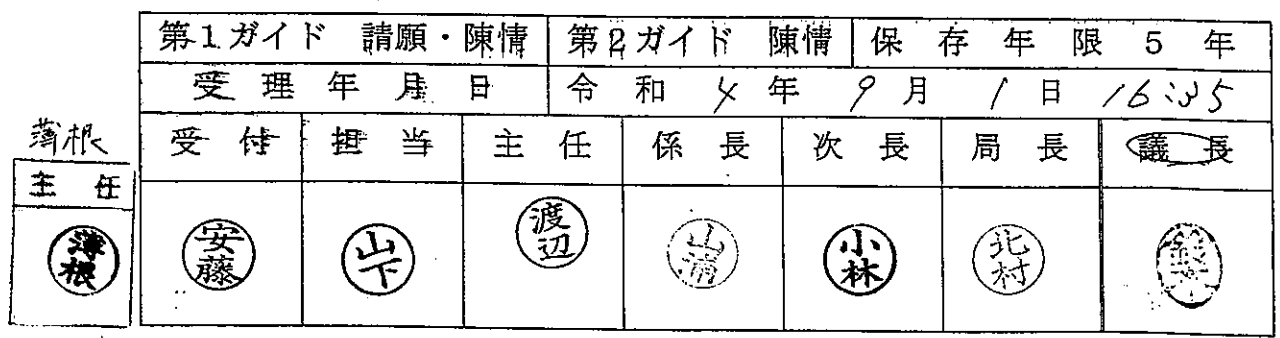 第1ガイド 請願・陳情 第2ガイド 陳情 保存年限 5年
受理年月日 令和 4年 9月 1日 16:35
薄根
受付 担当 主任 係長 次長 局長 議長
主任
薄根 安藤 山下 渡辺 山浦 小林 北村